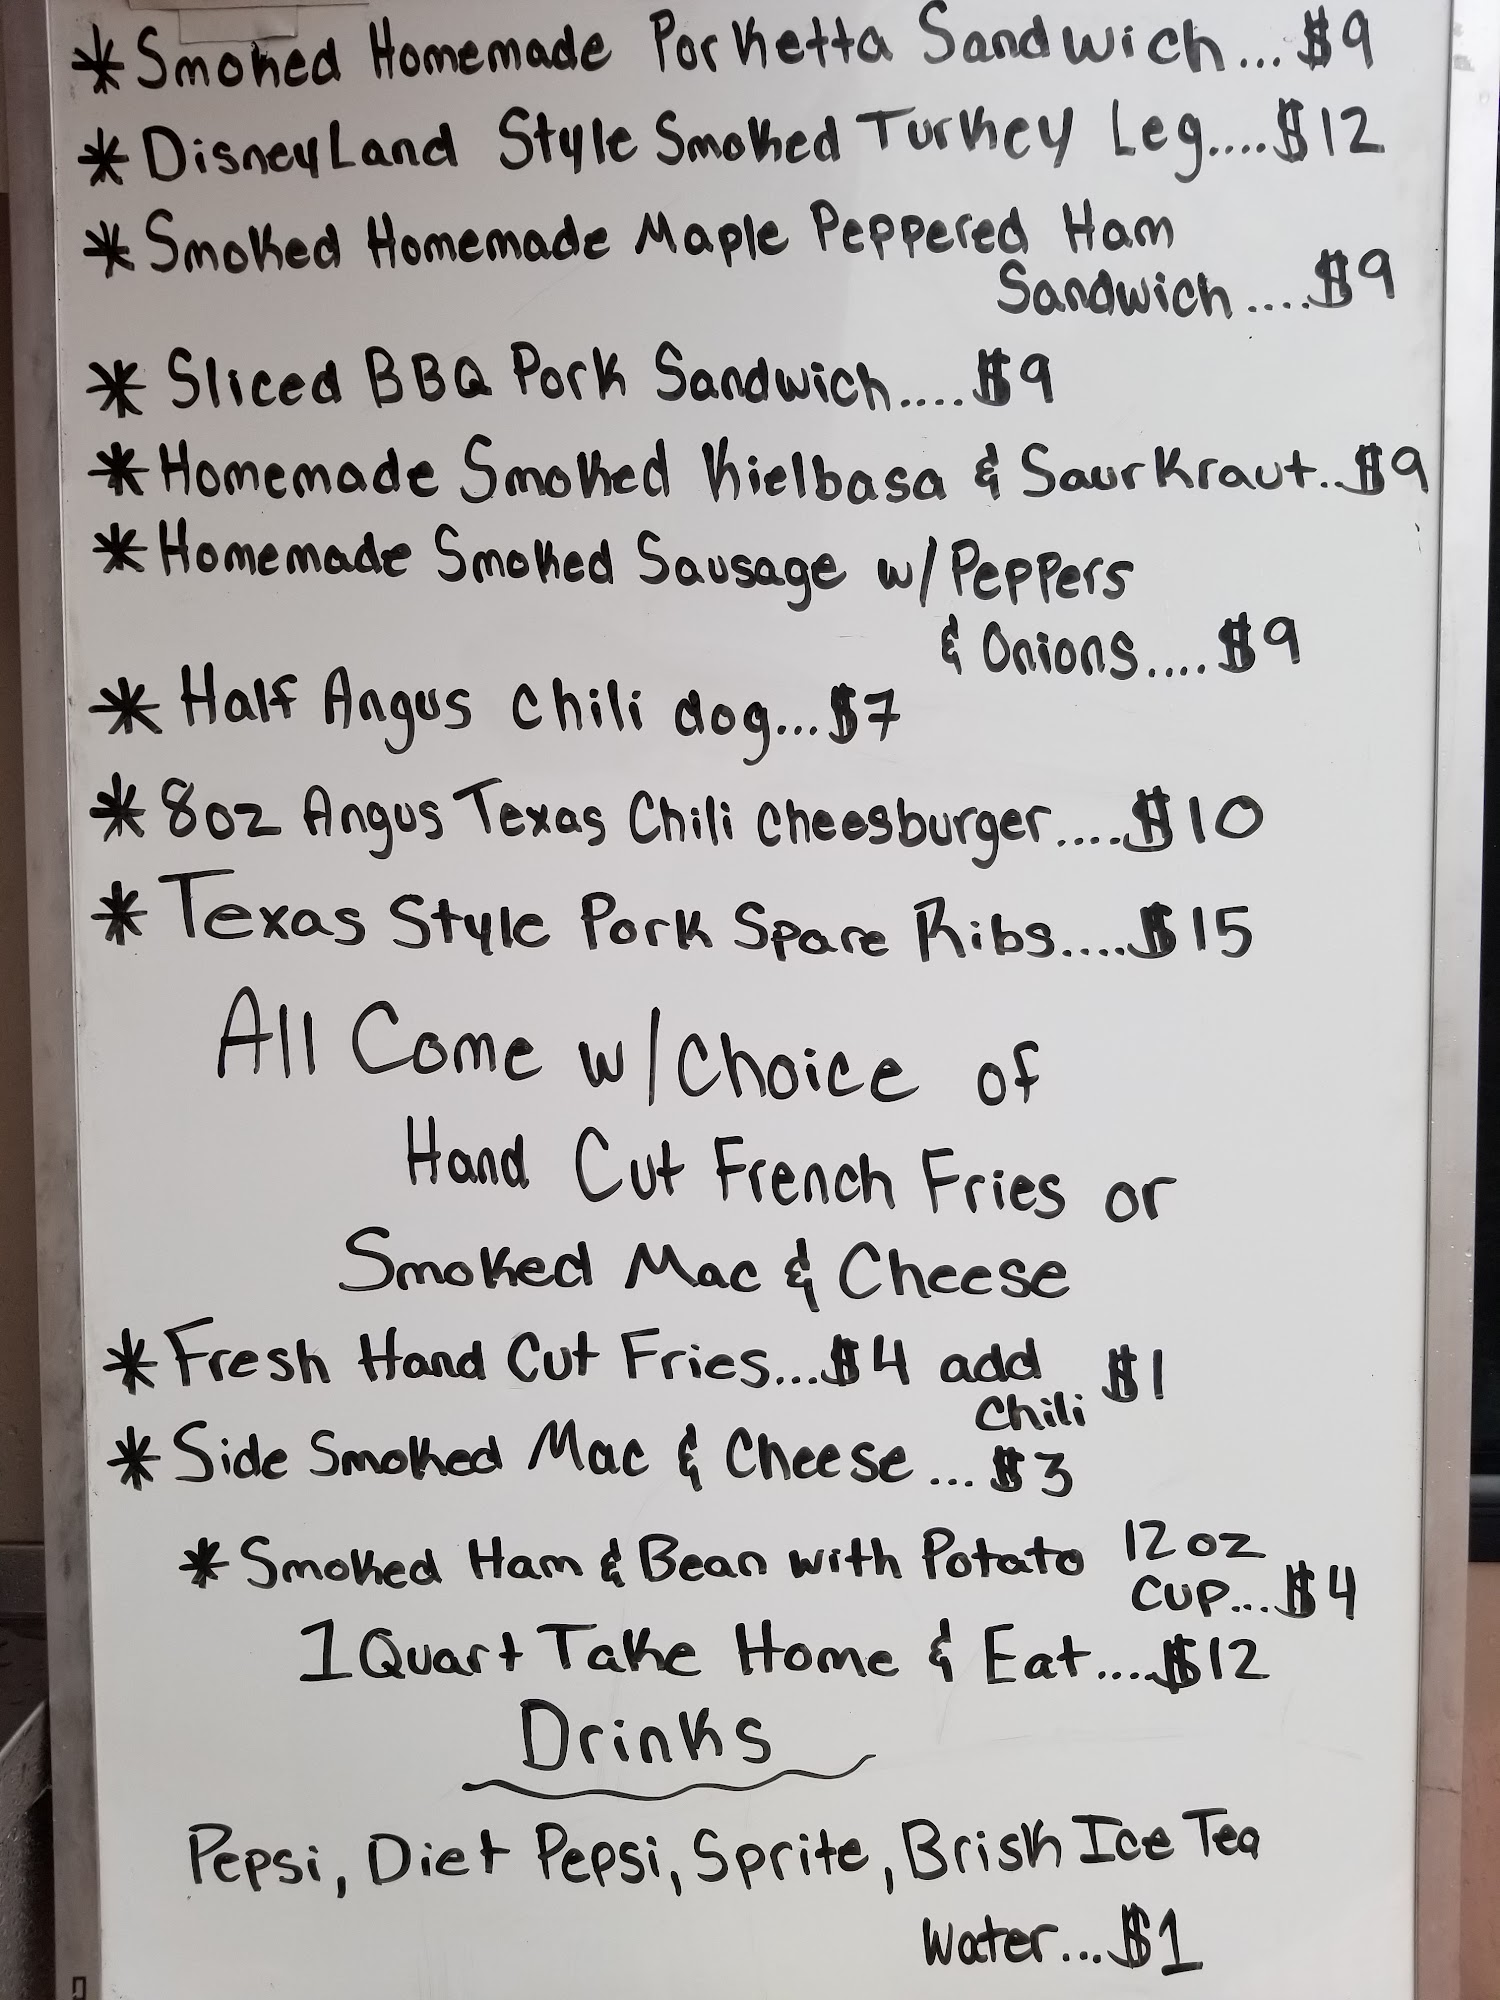 * Smoked Homemade Porketta Sandwich...$9
* DisneyLand Style Smoked Turkey Leg....$12
* Smoked Homemade Maple Peppered Ham
Sandwich....$9
* Sliced BBQ Pork Sandwich....$9
* Homemade Smoked Kielbasa & Saurkraut..$9
* Homemade Smoked Sausage w/Peppers
& Onions....$9
* Half Angus Chili dog...$7
* 8oz Angus Texas Chili Cheesburger....$10
* Texas Style Pork Spare Ribs....$15
All Come w/Choice of
Hand Cut French Fries or
Smoked Mac & Cheese
* Fresh Hand Cut Fries...$4 add $1
Chili
* Side Smoked Mac & Cheese...$3
* Smoked Ham & Bean with Potato 12oz
Cup...$4
1 Quart Take Home & Eat....$12
Drinks
Pepsi, Diet Pepsi, Sprite, Brisk Ice Tea
Water...$1